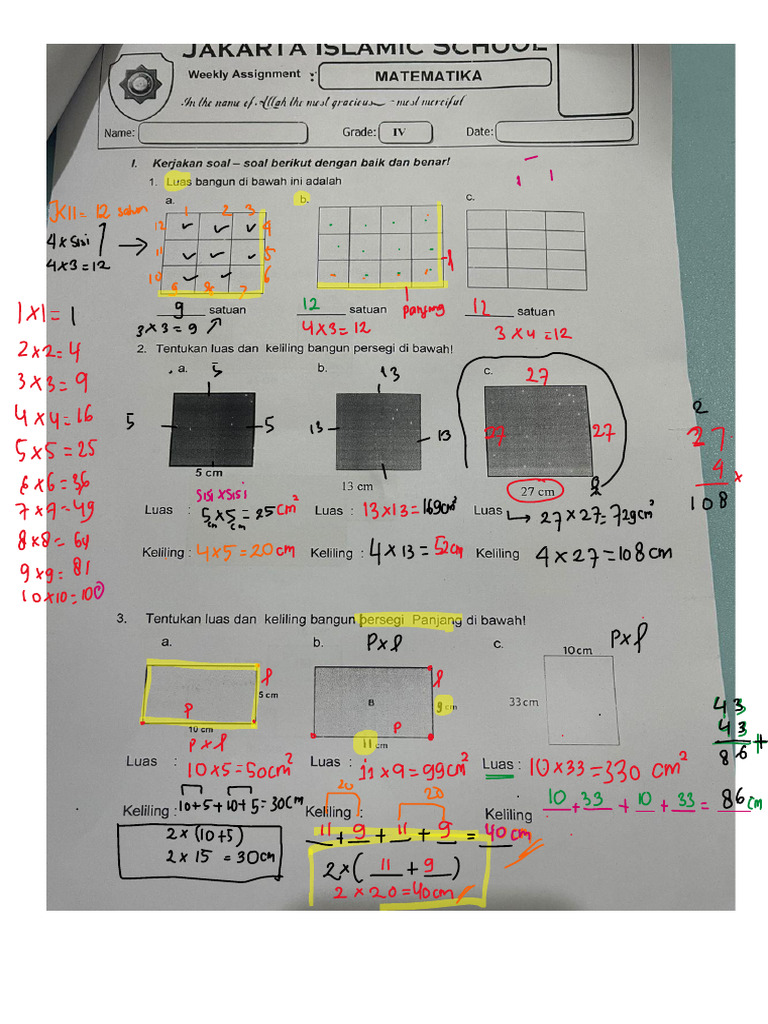 JAKARTA ISLAMIC SCHOOL
Weekly Assignment : MATEMATIKA
In the name of Allah the most gracious - most merciful
Name: Grade: IV Date:
I. Kerjakan soal – soal berikut dengan baik dan benar!
1. Luas bangun di bawah ini adalah
a. b. c.
Kll = 12 satuan
4 x sisi
4 x 3 = 12
1 2 3
12 4
11 5
10 6
9 8 7
l
panjang
9 satuan 12 satuan 12 satuan
3 x 3 = 9 4 x 3 = 12 3 x 4 = 12
1 x 1 = 1
2 x 2 = 4
3 x 3 = 9
4 x 4 = 16
5 x 5 = 25
6 x 6 = 36
7 x 7 = 49
8 x 8 = 64
9 x 9 = 81
10 x 10 = 100
2. Tentukan luas dan keliling bangun persegi di bawah!
a. 5 b. 13 c. 27
5 5 13 13 27 27
5 cm 13 cm 27 cm
2
27
4 x
108
sisi x sisi
Luas : 5 cm x 5 cm = 25 cm² Luas : 13 x 13 = 169 cm² Luas → 27 x 27 = 729 cm²
Keliling : 4 x 5 = 20 cm Keliling : 4 x 13 = 52 cm Keliling 4 x 27 = 108 cm
3. Tentukan luas dan keliling bangun persegi Panjang di bawah!
a. b. P x l c. P x l
10 cm
l 5 cm B l 9 cm 33 cm
P P
10 cm 11 cm
43
43
86 +
P x l
Luas : 10 x 5 = 50 cm² Luas : 11 x 9 = 99 cm² Luas : 10 x 33 = 330 cm²
20 20
Keliling : 10 + 5 + 10 + 5 = 30 cm Keliling : 11 + 9 + 11 + 9 = 40 cm Keliling 10 + 33 + 10 + 33 = 86 cm
2 x (10 + 5)
2 x 15 = 30 cm
2 x ( 11 + 9 )
2 x 20 = 40 cm